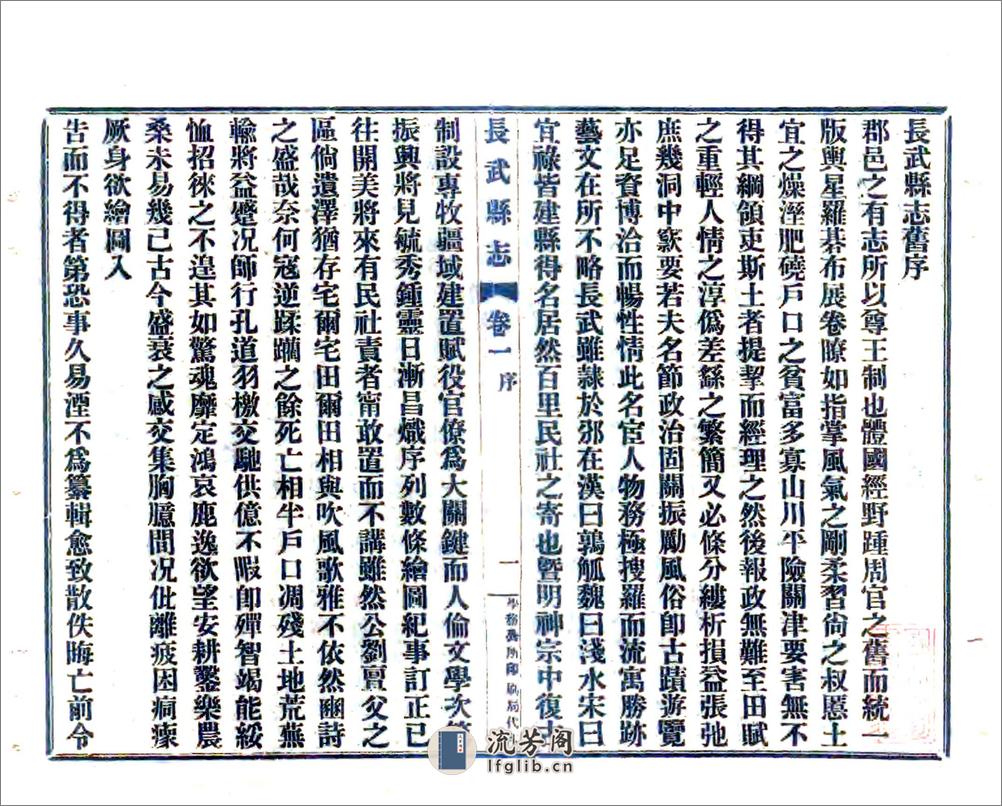 長武縣志舊序
郡邑之有志所以尊王制也體國經野踵周官之舊而統一
版輿星羅碁布展卷瞭如指掌風氣之剛柔習尙之叔慝土
宜之燥溼肥磽戶口之貧富多寡山川平險關津要害無不
得其綱領吏斯土者提挈而經理之然後報政無難至田賦
之重輕人情之淳僞差繇之繁簡又必條分縷析損益張弛
庶幾洞中窾要若夫名節政治固關振勵風俗卽古蹟游覽
亦足資博洽而暢性情此名宦人物務極搜羅而流寓勝跡
藝文在所不略長武雖隷於邠在漢曰鶉觚魏曰淺水宋曰
宜祿皆建縣得名居然百里民社之寄也曁明神宗中復古
長武縣志 卷一 序 一 學務公所印刷局代
制設專牧疆域建置賦役官僚爲大關鍵而人倫文學次第
振興將見毓秀鍾靈日漸昌熾序列數條繪圖紀事訂正已
往開美將來有民社責者甯敢置而不講雖然公劉亶父之
區倘遺澤猶存宅爾宅田爾田相與吹風歌雅不依然豳詩
之盛哉奈何寇逆蹂躪之餘死亡相半戶口凋殘土地荒蕪
輸將益蹙况師行孔道羽檄交馳供億不暇卽殫智竭能綏
恤招徠之不遑其如驚魂靡定鴻哀鹿逸欲望安耕鑿樂農
桑未易幾已古今盛衰之感交集胸臆間况仳離疲困痌瘝
厥身欲繪圖入
告而不得者第恐事久易湮不爲纂輯愈致散佚晦亡前令
流芳阁
lfglib.cn